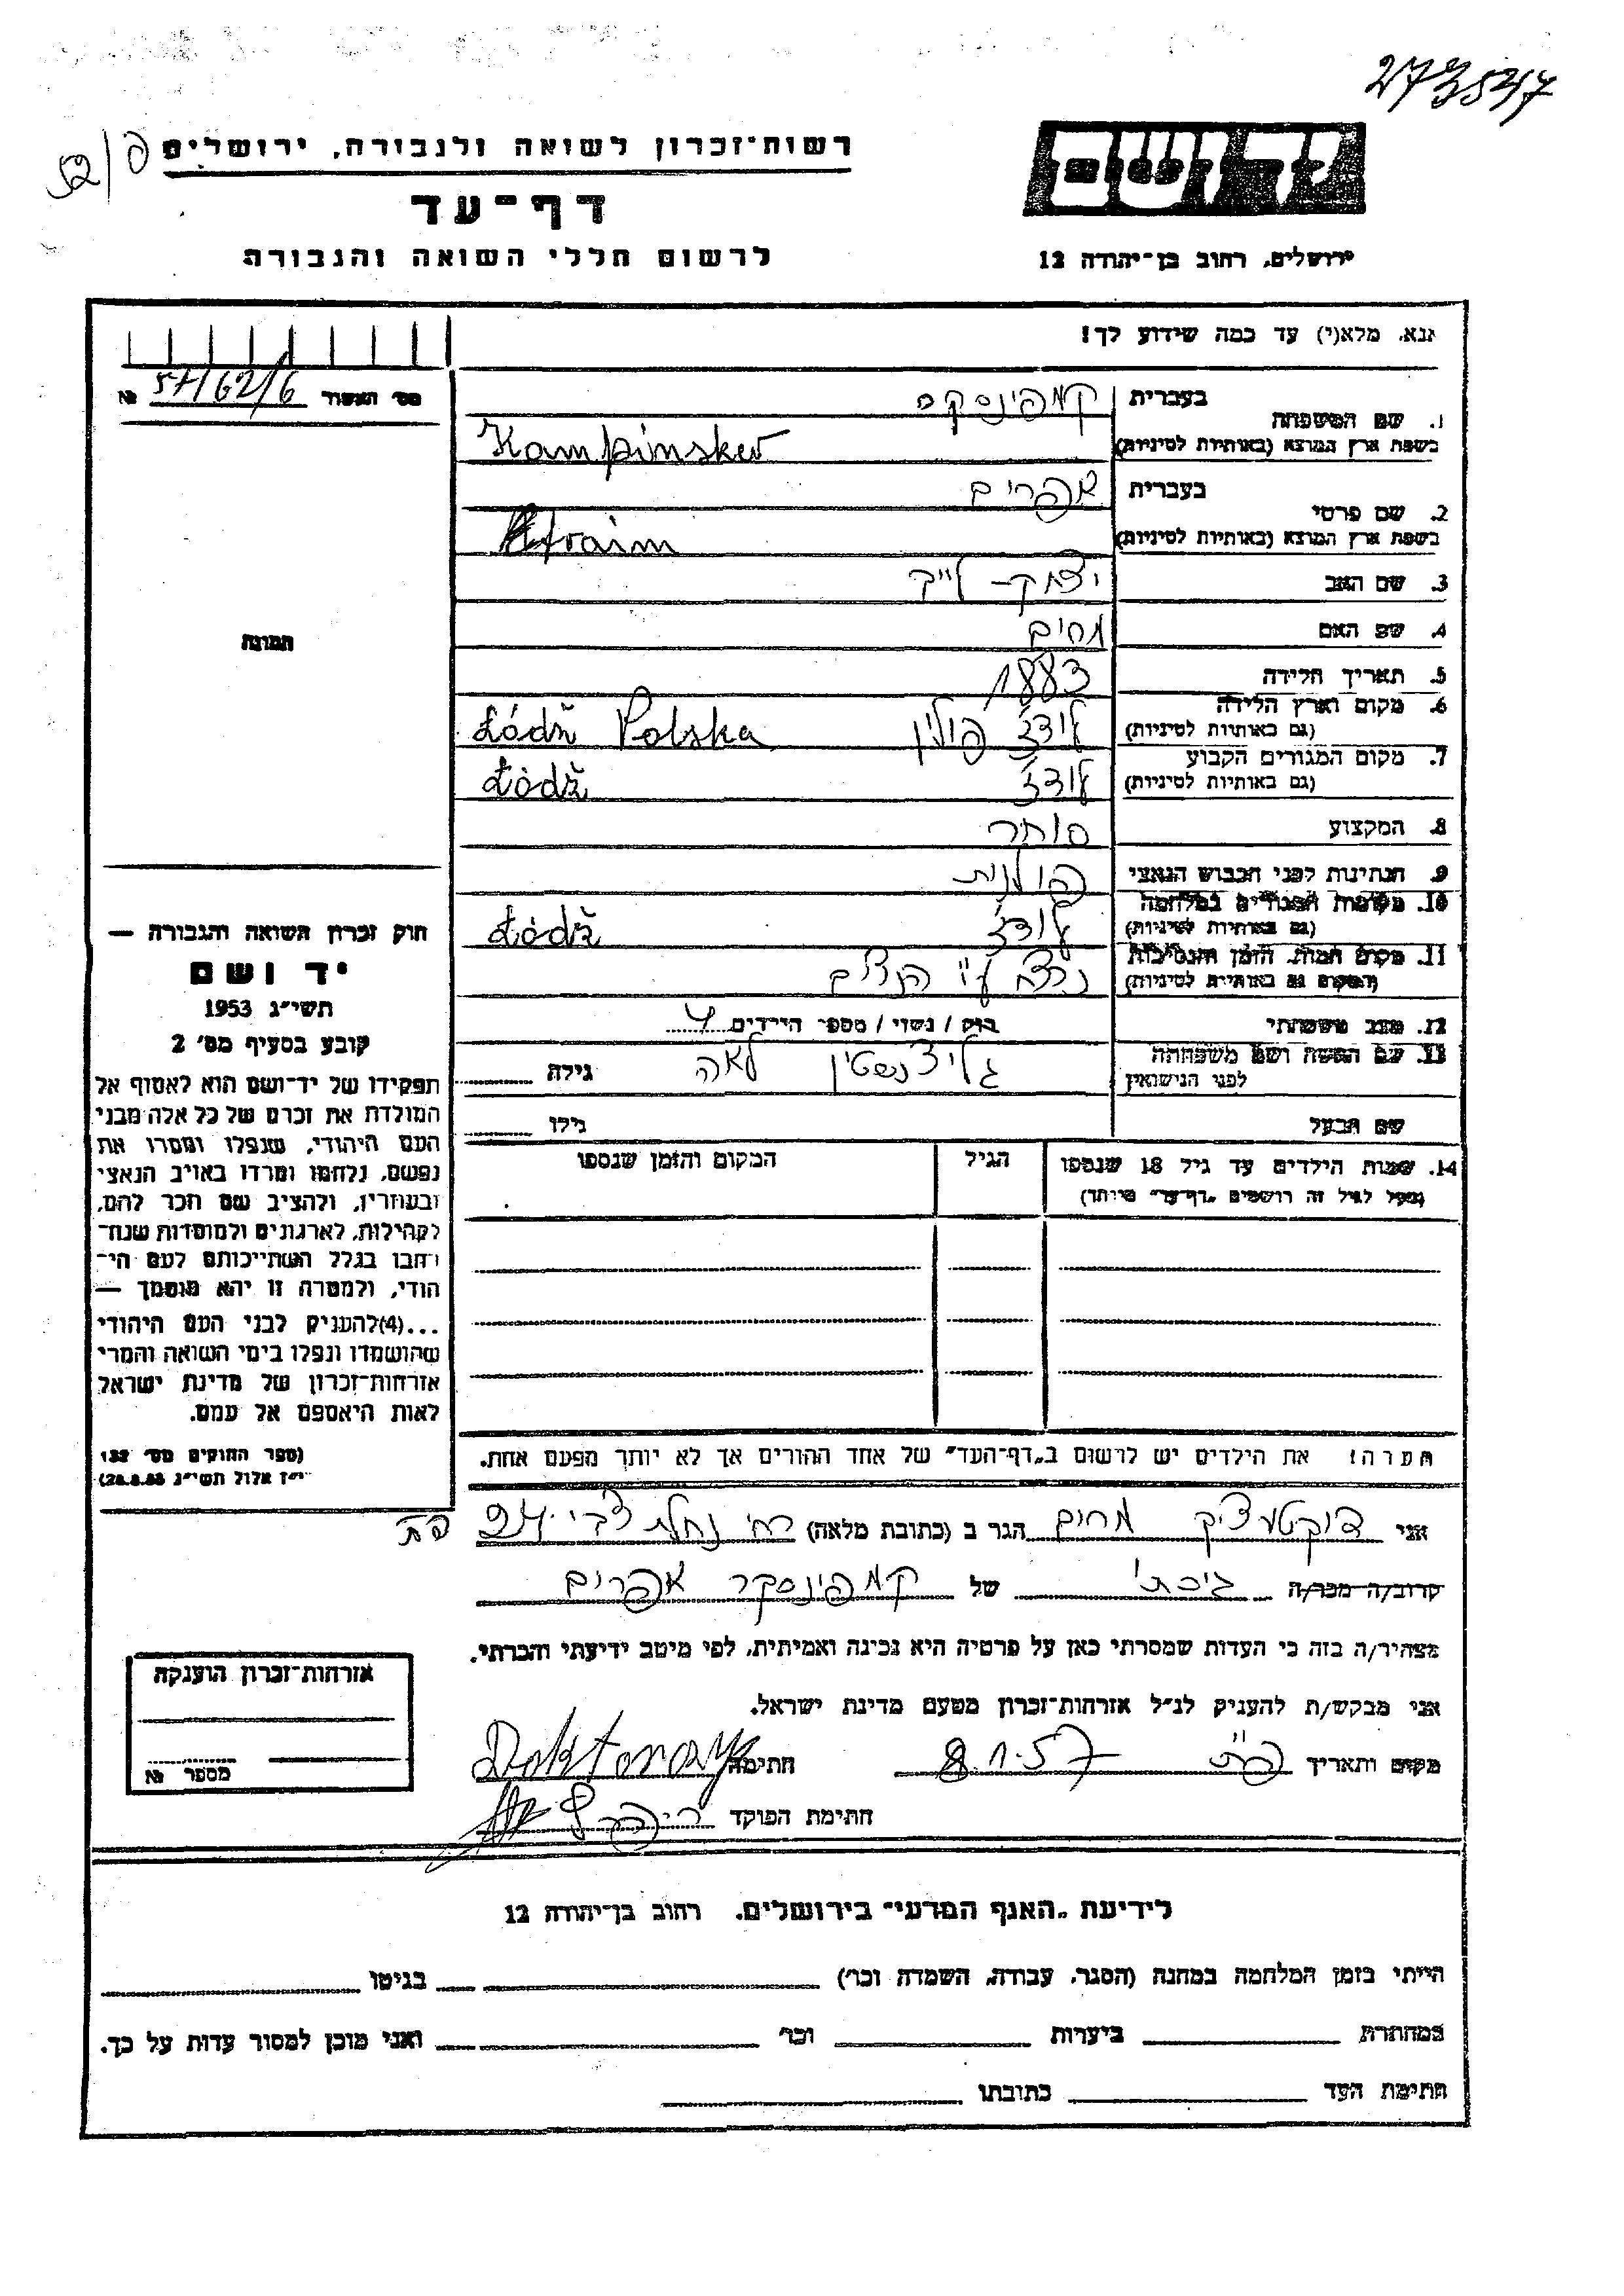 273547
52/פ
רשות־זכרון לשואה ולגבורה, ירושלים
דף־עד
לרשום חללי השואה והגבורה
יד ושם
ירושלים, רחוב בן־יהודה 12
אנא, מלא(י) עד כמה שידוע לך!
מס' האשור 57/62/6 №
1. שם המשפחה
בעברית קמפינסקי
בשפת ארץ המוצא (באותיות לטיניות) Kampinsker
2. שם פרטי
בעברית אפרים
בשפת ארץ המוצא (באותיות לטיניות) Efraim
3. שם האב יצחק-לייב
4. שם האם מרים
5. תאריך הלידה 1883
6. מקום וארץ הלידה לודז' פולין Łódź Polska
(גם באותיות לטיניות)
7. מקום המגורים הקבוע לודז' Łódź
(גם באותיות לטיניות)
8. המקצוע סוחר
9. הנתינות לפני הכבוש הנאצי פולנית
10. מקומות המגורים במלחמה לודז' Łódź
(גם באותיות לטיניות)
11. מקום המות, הזמן והנסיבות נרצח ע"י הנצים
(המקום גם באותיות לטיניות)
12. מצב משפחתי רווק / נשוי / מספר הילדים 4
13. שם האשה ושם משפחתה גליצנשטין לאה גילה
לפני הנישואין
שם הבעל גילו
14. שמות הילדים עד גיל 18 שנספו הגיל המקום והזמן שנספו
(מעל לגיל זה רושמים „דף־עד" מיוחד)
תמונה
חוק זכרון השואה והגבורה —
יד ושם
תשי״ג 1953
קובע בסעיף מס׳ 2
תפקידו של יד־ושם הוא לאסוף אל
המולדת את זכרם של כל אלה מבני
העם היהודי, שנפלו ומסרו את
נפשם, נלחמו ומרדו באויב הנאצי
ובעוזריו, ולהציב שם וזכר להם,
לקהילות, לארגונים ולמוסדות שנח־
רבו בגלל השתייכותם לעם הי־
הודי, ולמטרה זו יהא מוסמך —
...(4)להעניק לבני העם היהודי
שהושמדו ונפלו בימי השואה והמרי
אזרחות־זכרון של מדינת ישראל
לאות היאספם אל עמם.
(ספר החוקים מס׳ 132
י״ז אלול תשי״ג 28.8.53)
הערה! את הילדים יש לרשום ב„דף־העד" של אחד ההורים אך לא יותר מפעם אחת.
אני מרים הגר ב (כתובת מלאה) רח' נחלת צבי 24 פת
קרוב/ה מכר/ה של קמפינסקר אפרים
מצהיר/ה בזה כי העדות שמסרתי כאן על פרטיה היא נכונה ואמיתית, לפי מיטב ידיעתי והכרתי.
אני מבקש/ת להעניק לנ״ל אזרחות־זכרון מטעם מדינת ישראל.
מקום ותאריך פ"ת 8.1.57 חתימה
חתימת הפוקד
אזרחות־זכרון הוענקה
מספר №
לידיעת „האגף המדעי" בירושלים, רחוב בן־יהודה 12
הייתי בזמן המלחמה במחנה (הסגר, עבודה, השמדה וכו׳) בגיטו
במחתרת ביערות וכו׳ ואני מוכן למסור עדות על כך.
חתימת העד כתובתו